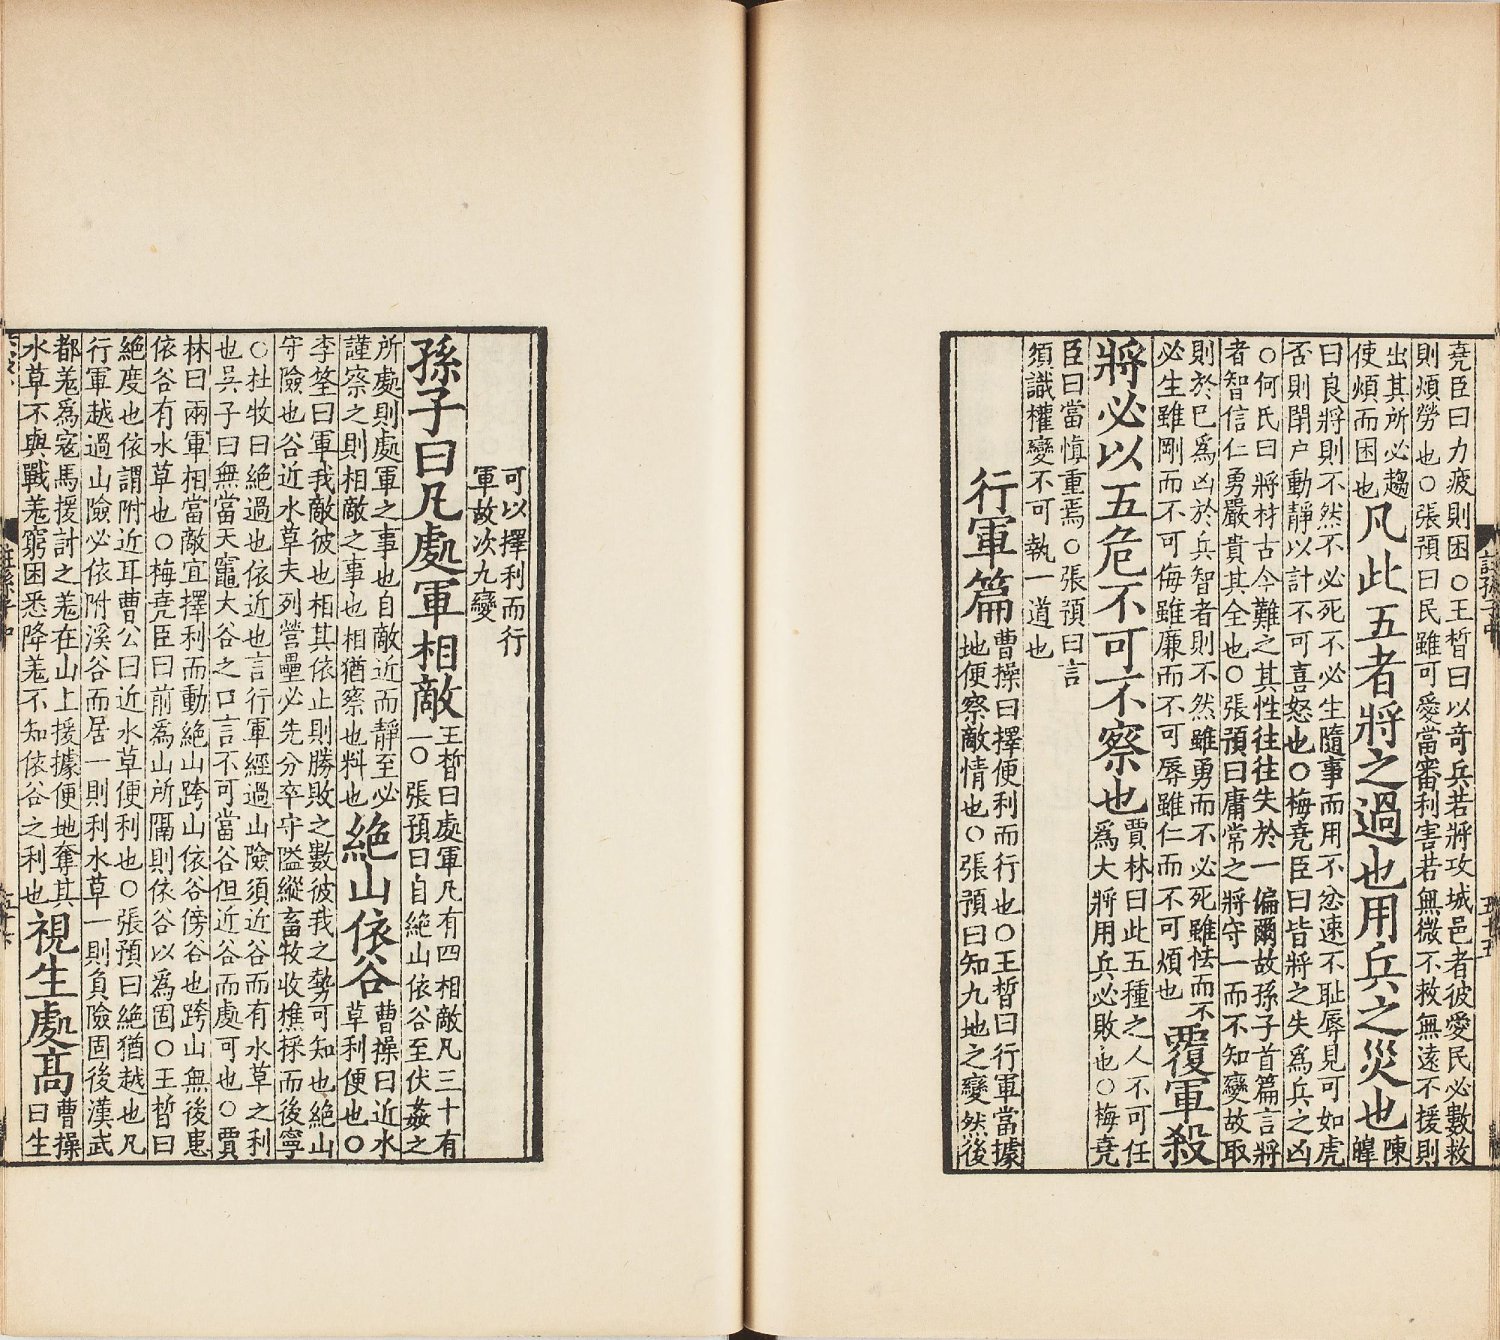 堯臣曰力疲則困○王晳曰以奇兵若將攻城邑者彼愛民必數救
則煩勞也○張預曰民雖可愛當審利害若無微不救無遠不援則
出其所必趨
使煩而困也
凡此五者將之過也用兵之災也
陳
皥
曰良將則不然不必死不必生隨事而用不忿速不恥辱見可如虎
否則閉户動靜以計不可喜怒也○梅堯臣曰皆將之失爲兵之凶
○何氏曰將材古今難之其性往往失於一偏爾故孫子首篇言將
者智信仁勇嚴貴其全也○張預曰庸常之將守一而不知變故取
則於已爲凶於兵智者則不然雖勇而不必死雖怯而不
必生雖剛而不可侮雖廉而不可辱雖仁而不可煩也
覆軍殺
將必以五危不可不察也
賈林曰此五種之人不可任
爲大將用兵必敗也○梅堯
臣曰當慎重焉○張預曰言
須識權變不可執一道也
行軍篇
曹操曰擇便利而行也○王晳曰行軍當據
地便察敵情也○張預曰知九地之變然後
可以擇利而行
軍故次九變
孫子曰凡處軍相敵
王晳曰處軍凡有四相敵凡三十有
一○張預曰自絶山依谷至伏姦之
所處則處軍之事也自敵近而靜至必
謹察之則相敵之事也相猶察也料也
絶山依谷
曹操曰近水
草利便也○
李筌曰軍我敵彼也相其依止則勝敗之數彼我之勢可知也絶山
守險也谷近水草夫列營壘必先分卒守隘縱畜牧收樵採而後寧
○杜牧曰絶過也依近也言行軍經過山險須近谷而有水草之利
也吴子曰無當天竈大谷之口言不可當谷但近谷而處可也○賈
林曰兩軍相當敵宜擇利而動絶山跨山依谷傍谷也跨山無後患
依谷有水草也○梅堯臣曰前爲山所隔則依谷以爲固○王晳曰
絶度也依謂附近耳曹公曰近水草便利也○張預曰絶猶越也凡
行軍越過山險必依附溪谷而居一則利水草一則負險固後漢武
都羌爲寇馬援討之羌在山上援據便地奪其
水草不與戰羌窮困悉降羌不知依谷之利也
視生處高
曹操
曰生